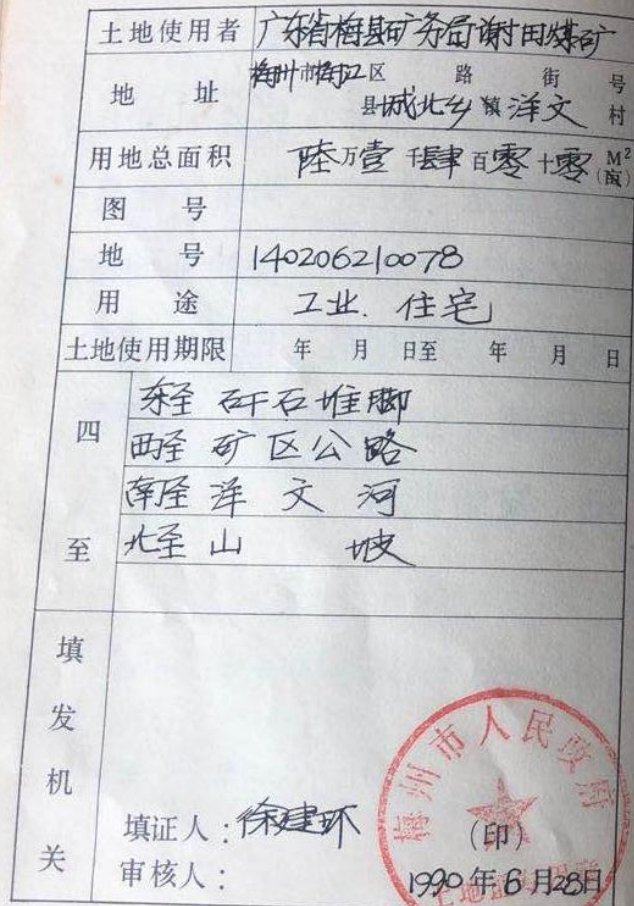 土地使用者 广东省梅县矿务局谢田煤矿
地 址 梅州市梅江区 路 街 号
县城北乡镇洋文村
用地总面积 陆万壹千肆百零十零 M²(亩)
图 号
地 号 140206210078
用 途 工业.住宅
土地使用期限 年 月 日至 年 月 日
四至
东至 矸石堆脚
西至 矿区公路
南至 洋文河
北至 山坡
填发机关
梅州市人民政府
填证人:徐建环 (印)
审核人: 1990年6月28日